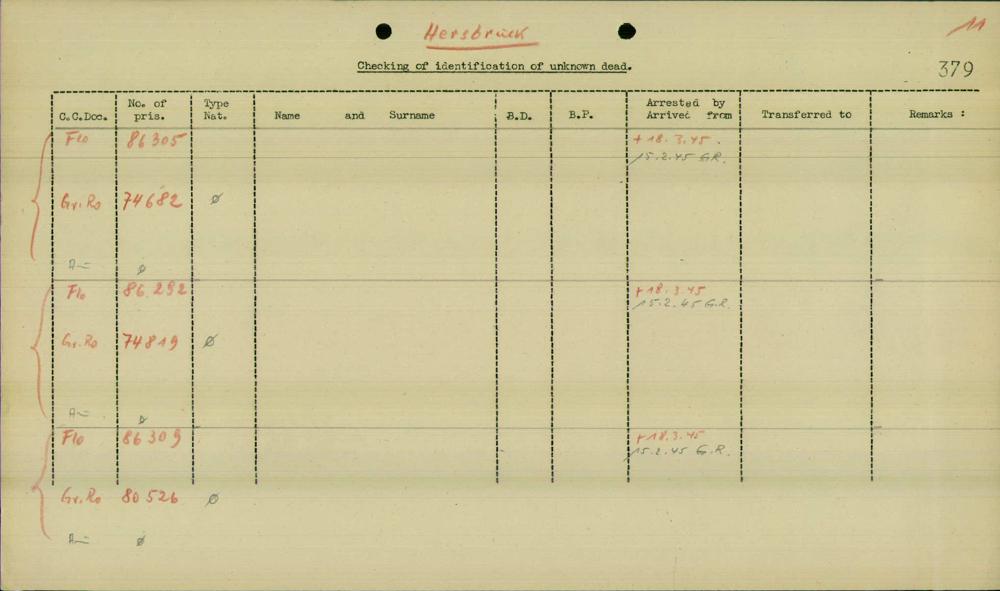 Hersbruck 11
Checking of identification of unknown dead.
379
C.C.Doc. No. of pris. Type Nat. Name and Surname B.D. B.P. Arrested by Arrived from Transferred to Remarks :
Flo 86305 + 18.3.45.
15.2.45 G.R.
Gr.Ro 74682 ø
A= ø
Flo 86292 + 18.3.45
15.2.45 G.R.
Gr.Ro 74819 ø
A= ø
Flo 86309 + 18.3.45
15.2.45 G.R.
Gr.Ro 80526 ø
A= ø